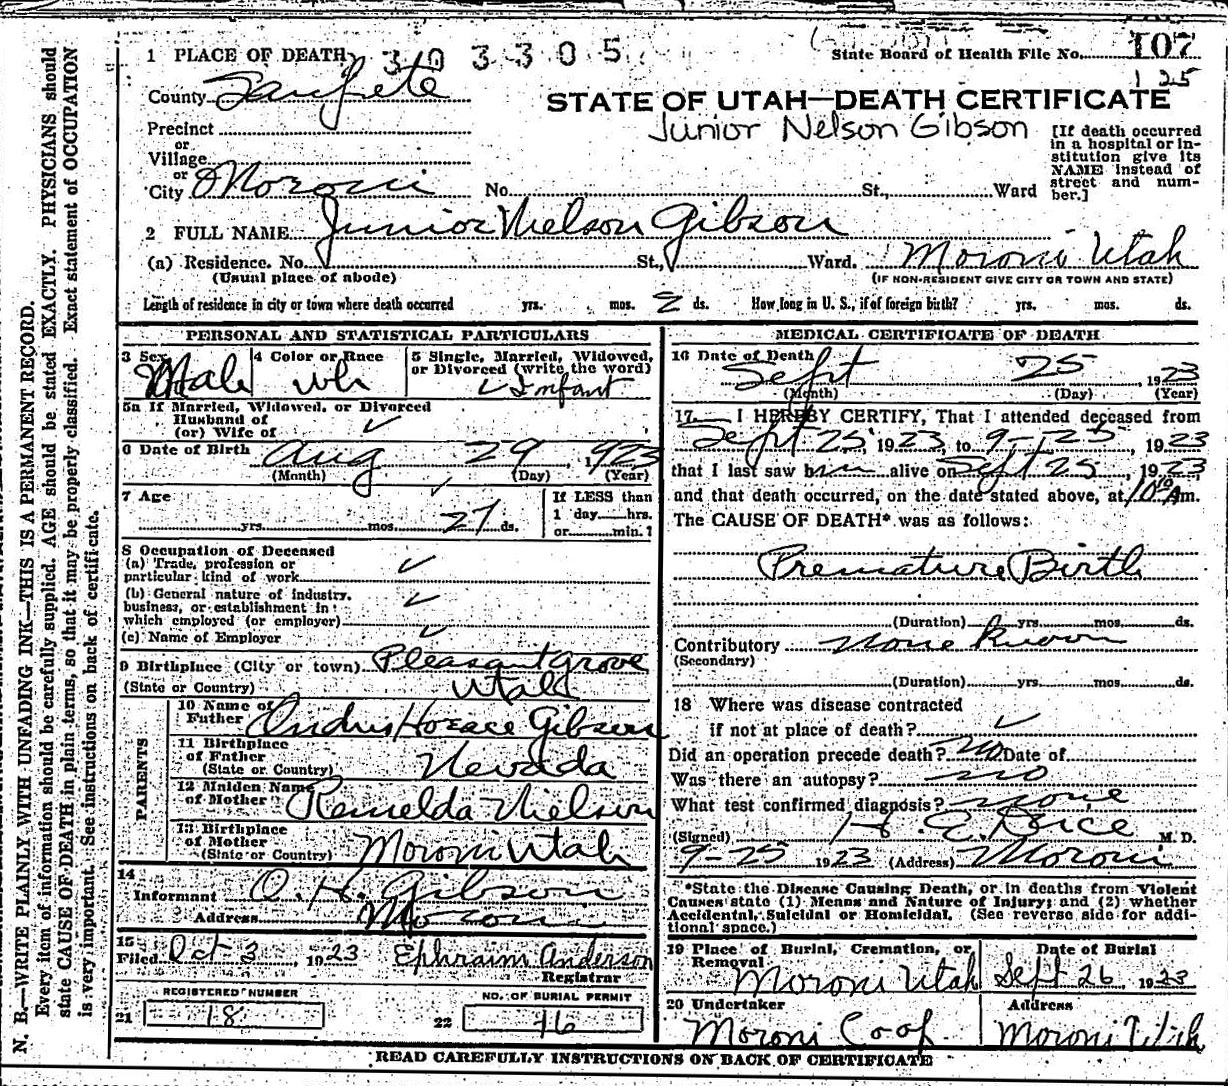 1 PLACE OF DEATH 303305 State Board of Health File No. 107
125
County Sanpete
STATE OF UTAH—DEATH CERTIFICATE
Junior Nelson Gibson
Precinct
or
Village
or
City Moroni No. St., Ward
[If death occurred
in a hospital or in-
stitution give its
NAME instead of
street and num-
ber.]
2 FULL NAME Junior Nielson Gibson
(a) Residence. No. St., Ward. Moroni Utah
(Usual place of abode) (IF NON-RESIDENT GIVE CITY OR TOWN AND STATE)
Length of residence in city or town where death occurred yrs. mos. 2 ds. How long in U. S., if of foreign birth? yrs. mos. ds.
PERSONAL AND STATISTICAL PARTICULARS
3 Sex Male
4 Color or Race wh
5 Single, Married, Widowed,
or Divorced (write the word)
Infant
5a If Married, Widowed, or Divorced
Husband of
(or) Wife of
6 Date of Birth Aug 29 1923
(Month) (Day) (Year)
7 Age yrs. mos. 27 ds.
If LESS than
1 day hrs.
or min.?
8 Occupation of Deceased
(a) Trade, profession or
particular kind of work
(b) General nature of industry,
business, or establishment in
which employed (or employer)
(c) Name of Employer
9 Birthplace (City or town) Pleasant Grove
(State or Country) Utah
PARENTS
10 Name of
Father Horace Gibson
11 Birthplace
of Father
(State or Country) Nevada
12 Maiden Name
of Mother Remelda Nielson
13 Birthplace
of Mother
(State or Country) Moroni Utah
14
Informant O. H. Gibson
Address Moroni
15
Filed Oct 3 1923 Ephraim Anderson
Registrar
REGISTERED NUMBER
21 18
NO. OF BURIAL PERMIT
22 16
MEDICAL CERTIFICATE OF DEATH
16 Date of Death
Sept 25, 1923
(Month) (Day) (Year)
17. I HEREBY CERTIFY, That I attended deceased from
Sept 25, 1923, to 9-25, 1923
that I last saw him alive on Sept 25, 1923,
and that death occurred, on the date stated above, at 10 Am.
The CAUSE OF DEATH* was as follows:
Premature Birth
(Duration) yrs. mos. ds.
Contributory none known
(Secondary)
(Duration) yrs. mos. ds.
18 Where was disease contracted
if not at place of death?
Did an operation precede death? No Date of
Was there an autopsy? no
What test confirmed diagnosis? none
(Signed) M. D.
9-25 1923 (Address) Moroni
*State the Disease Causing Death, or in deaths from Violent
Causes state (1) Means and Nature of Injury; and (2) whether
Accidental, Suicidal or Homicidal. (See reverse side for addi-
tional space.)
19 Place of Burial, Cremation, or
Removal
Moroni Utah
Date of Burial
Sept 26, 1923
20 Undertaker
Moroni Co op.
Address
Moroni Utah
READ CAREFULLY INSTRUCTIONS ON BACK OF CERTIFICATE
N. B.—WRITE PLAINLY WITH UNFADING INK—THIS IS A PERMANENT RECORD.
Every item of information should be carefully supplied. AGE should be stated EXACTLY. PHYSICIANS should
state CAUSE OF DEATH in plain terms, so that it may be properly classified. Exact statement of OCCUPATION
is very important. See instructions on back of certificate.